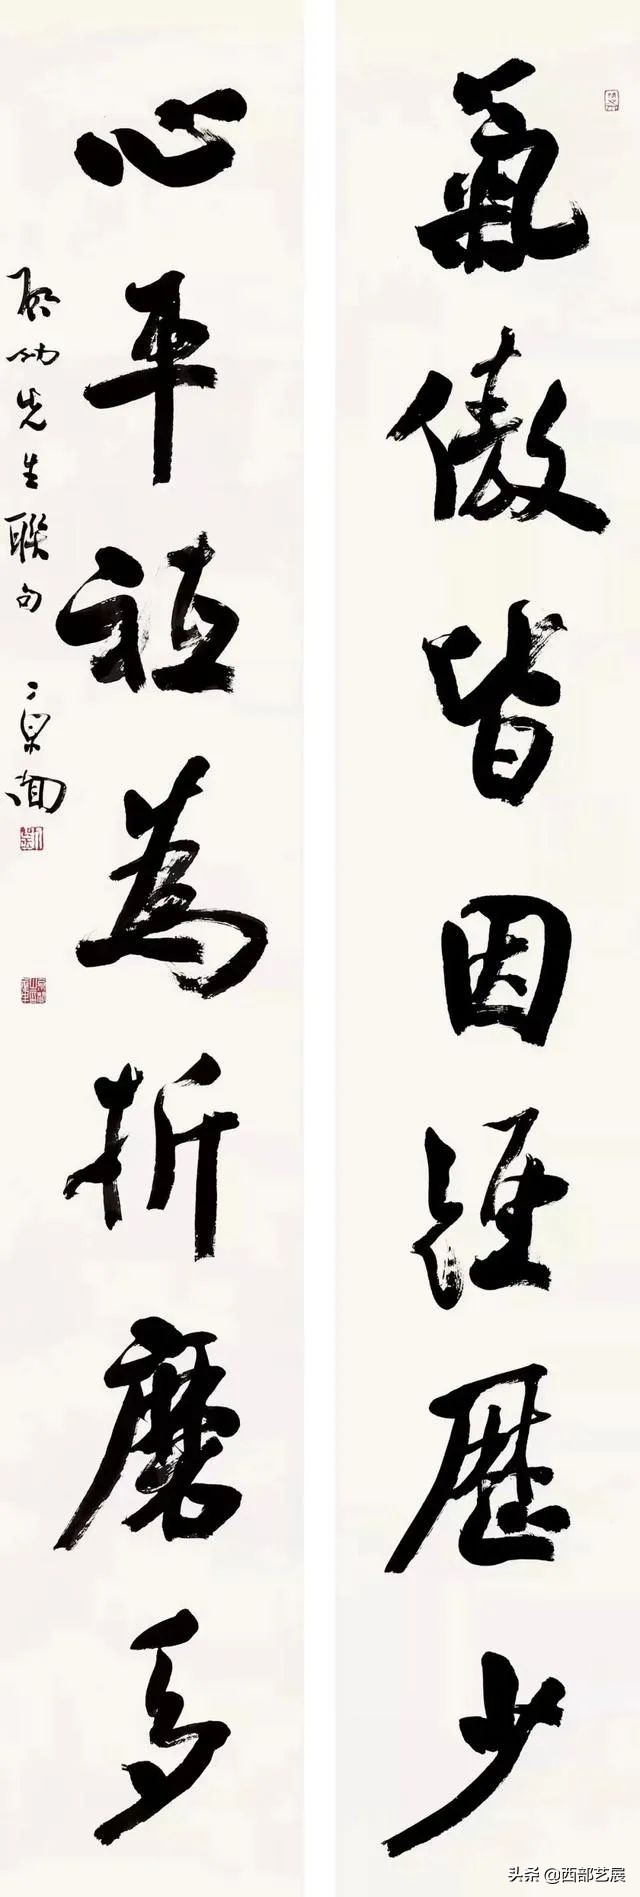 氣傲皆因經歷少
心平祗為折磨多
啟功先生聯句
頭条 @西部艺展